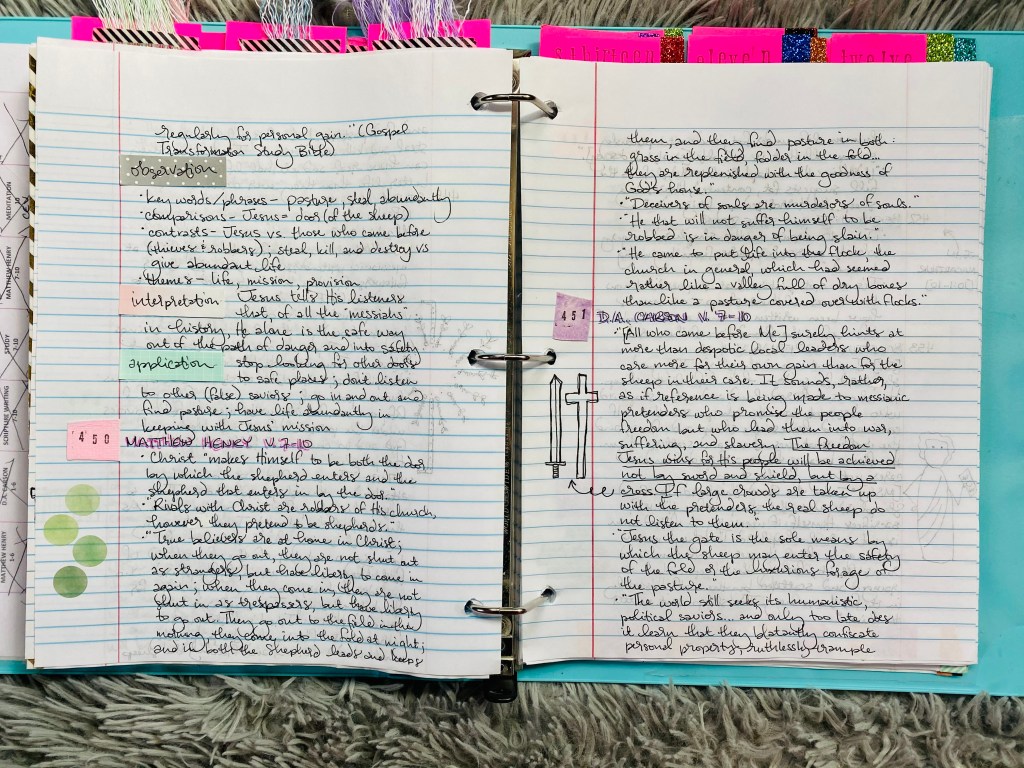 thirteen
eleven
twelve
regularly for personal gain." (Gospel
Transformation Study Bible)
observation
• key words/phrases - pasture, steal, abundantly
• comparisons - Jesus = door (of the sheep)
• contrasts - Jesus vs. those who came before
(thieves & robbers); steal, kill, and destroy vs
give abundant life
• themes - life, mission, provision
interpretation Jesus tells His listeners
that, of all the "messiahs"
in history, He alone is the safe way
out of the path of danger and into safety
application stop looking for other doors
to safe places; don't listen
to other (false) saviors; go in and out and
find pasture; have life abundantly in
keeping with Jesus' mission
450 MATTHEW HENRY V. 7-10
• Christ "makes Himself to be both the door
by which the shepherd enters and the
shepherd that enters in by the door."
• "Rivals with Christ are robbers of His church,
however they pretend to be shepherds."
• "True believers are at home in Christ;
when they go out, they are not shut out
as strangers, but have liberty to come in
again; when they come in, they are not
shut in as trespassers, but have liberty
to go out. They go out to the field in the
morning, they come into the fold at night;
and in both the shepherd leads and keeps
them, and they find pasture in both:
grass in the field, fodder in the fold...
they are replenished with the goodness of
God's house."
• "Deceivers of souls are murderers of souls."
• "He that will not suffer himself to be
robbed is in danger of being slain."
• "He came to put life into the flock, the
church in general, which had seemed
rather like a valley full of dry bones
than like a pasture covered over with flocks."
451 D.A. CARSON V. 7-10
• "[All who came before Me] surely hints at
more than despotic local leaders who
care more for their own gain than for the
sheep in their care. It sounds, rather,
as if reference is being made to messianic
pretenders who promise the people
freedom but who lead them into war,
suffering, and slavery. The freedom
Jesus wins for His people will be achieved
not by sword and shield, but by a
cross. If large crowds are taken up
with the pretenders, the real sheep do
not listen to them."
• "Jesus the gate is the sole means by
which the sheep may enter the safety
of the fold or the luxurious forage of
the pasture."
• "The world still seeks its humanistic,
political saviors... and only too late does
it learn that they blatantly confiscate
personal property, ruthlessly trample
MEDITATION
MATTHEW HENRY
7-10
STUDY
SCRIPTURE WRITING
D.A. CARSON
MATTHEW HENRY
1-6